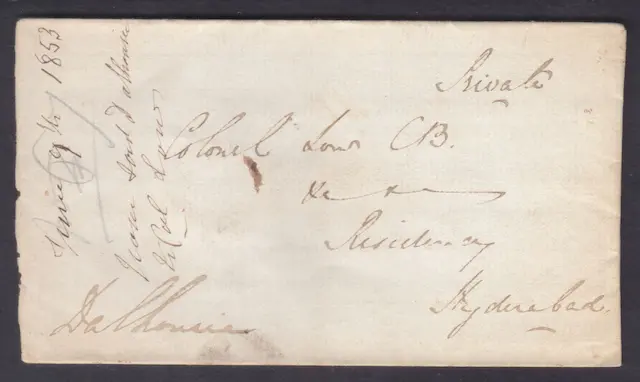 Private
Colonel Low CB.
&c &c
Residency
Hyderabad.
Dalhousie
June 9th 1853
From Lord Dalhousie
to Col Low